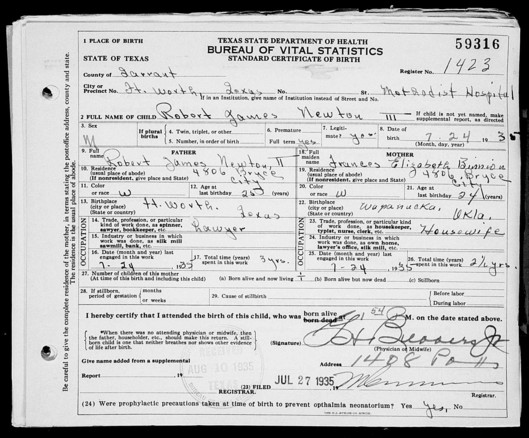 TEXAS STATE DEPARTMENT OF HEALTH
BUREAU OF VITAL STATISTICS
STANDARD CERTIFICATE OF BIRTH
59316
1 PLACE OF BIRTH
STATE OF TEXAS
Register No. 1423
County of Tarrant
City or Precinct No. Ft. Worth, Texas No. St. Methodist Hospital
If in an Institution, give Name of Institution instead of Street and No.
2 FULL NAME OF CHILD Robert James Newton III
If child is not yet named, make supplemental report, as directed
3. Sex M
If plural births
4. Twin, triplet, or other
5. Number, in order of birth
6. Premature
Full term yes
7. Legitimate? yes
8. Date of birth 7 24 1935
(Month, day, year)
FATHER
9. Full name Robert James Newton, II
10. Residence 4806 Bryce
(usual place of abode)
(If nonresident, give place and State) City
11. Color or race W
12. Age at last birthday 25 (years)
13. Birthplace Ft. Worth,
(city or place)
(State or country) Texas
OCCUPATION
14. Trade, profession, or particular kind of work done, as spinner, sawyer, bookkeeper, etc. Lawyer
15. Industry or business in which work was done, as silk mill, sawmill, bank, etc.
16. Date (month and year) last engaged in this work 7-24 1935
17. Total time (years) spent in this work 3 yrs.
MOTHER
18. Full maiden name Frances Elizabeth
19. Residence 4806, Bryce
(usual place of abode)
(If nonresident, give place and State) City
20. Color or race W
21. Age at last birthday 24 (years)
22. Birthplace Wapanucka,
(city or place)
(State or country) Okla.
OCCUPATION
23. Trade, profession, or particular kind of work done, as housekeeper, typist, nurse, clerk, etc. Housewife
24. Industry or business in which work was done, as own home, lawyer's office, silk mill, etc.
25. Date (month and year) last engaged in this work 7-24 1935
26. Total time (years) spent in this work 2½ yrs.
27. Number of children of this mother
(At time of this birth and including this child) (a) Born alive and now living 1 (b) Born alive but now dead (c) Stillborn
28. If stillborn, period of gestation months or weeks
29. Cause of stillbirth
Before labor
During labor
I hereby certify that I attended the birth of this child, who was born alive M. on the date stated above.
"When there was no attending physician or midwife, then the father, householder, etc., should make this return. A stillborn child is one that neither breathes nor shows other evidence of life after birth.
(Signature)
(Physician or Midwife)
Give name added from supplemental
Address 1408
Report 19
(23) FILED JUL 27 1935
REGISTRAR.
REGISTRAR.
(24) Were prophylactic precautions taken at time of birth to prevent opthalmia neonatorium? Yes yes, No